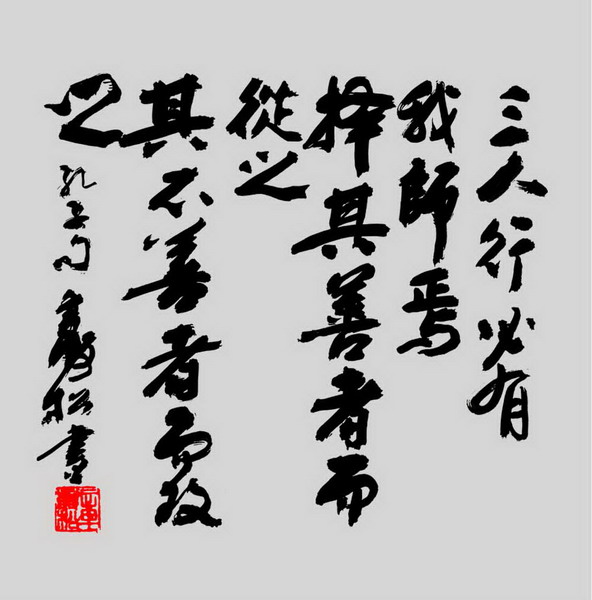 三人行必有
我師焉
择其善者而
從之
其不善者而改
之
孔子句 松書